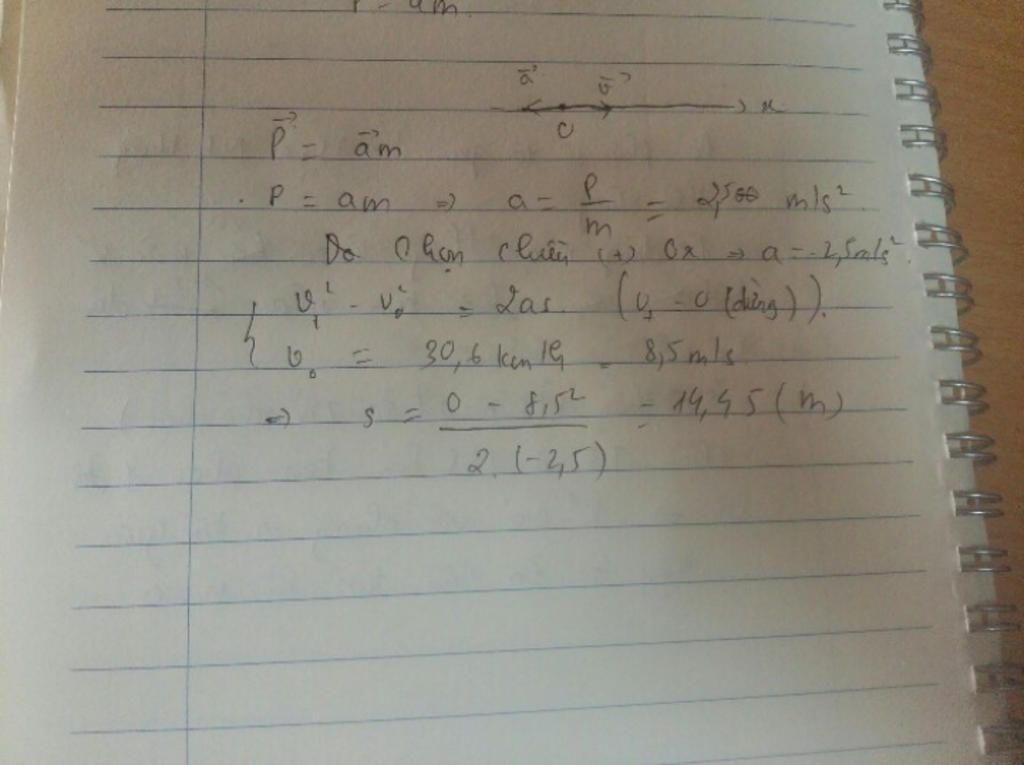 = am
a⃗ v⃗
O x
P⃗ = a⃗m
. P = am => a = P/m = 2,500 m/s²
Do Chọn chiều (+) Ox => a = -2,5m/s².
{ v₁² - v₀² = 2as. (v₁ = 0 (dừng)).
v₀ = 30,6 km/h = 8,5 m/s
=> s = (0 - 8,5²) / (2.(-2,5)) = 14,45 (m)